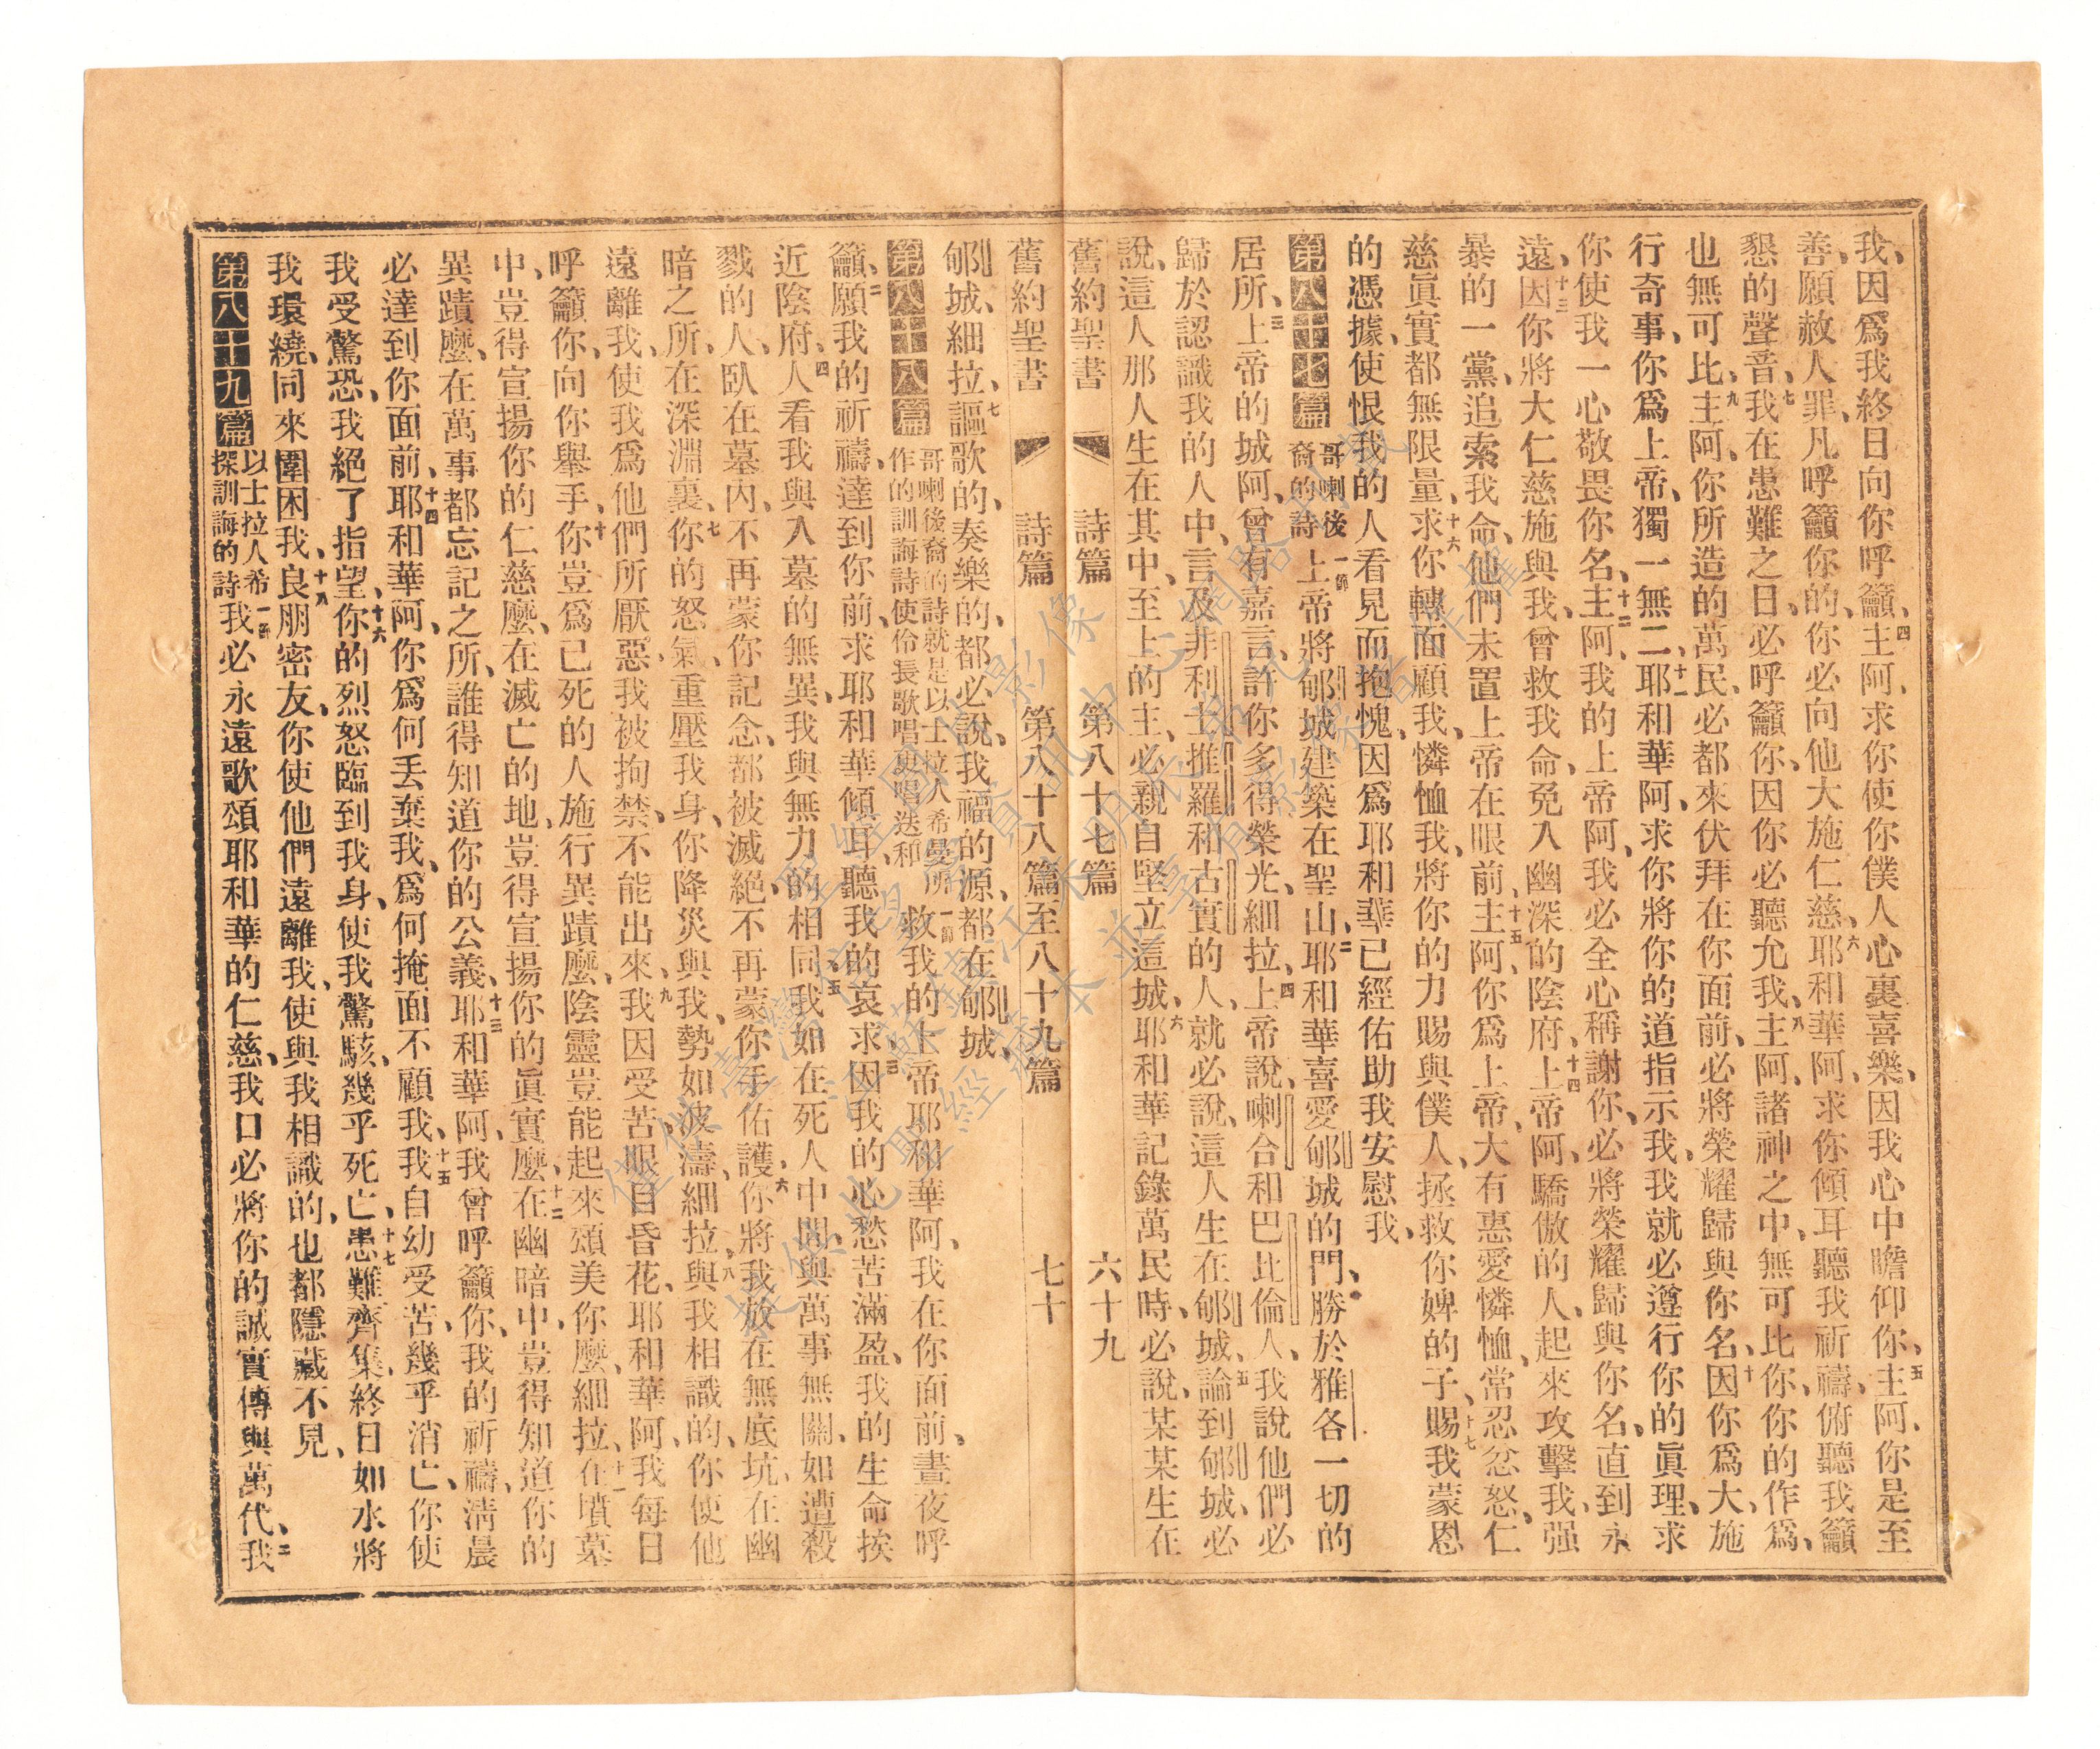 我、因爲我終日向你呼籲、四主阿、求你使你僕人心裏喜樂、因我心中瞻仰你、五主阿、你是至
善、願赦人罪、凡呼籲你的、你必向他大施仁慈、六耶和華阿、求你傾耳聽我祈禱、俯聽我籲
懇的聲音、七我在患難之日、必呼籲你、因你必聽允我、八主阿、諸神之中、無可比你、你的作爲、
也無可比、九主阿、你所造的萬民、必都來伏拜在你面前、必將榮耀歸與你名、十因你爲大、施
行奇事、你爲上帝、獨一無二、十一耶和華阿、求你將你的道指示我、我就必遵行你的眞理、求
你使我一心敬畏你名、十二主阿、我的上帝阿、我必全心稱謝你、必將榮耀歸與你名、直到永
遠、十三因你將大仁慈施與我、曾救我命、免入幽深的陰府、十四上帝阿、驕傲的人、起來攻擊我、强
暴的一黨、追索我命、他們未置上帝在眼前、十五主阿、你爲上帝、大有恩愛憐恤、常忍忿怒、仁
慈眞實都無限量、十六求你轉面顧我、憐恤我、將你的力賜與僕人、拯救你婢的子、十七賜我蒙恩
的憑據、使恨我的人看見而抱愧、因爲耶和華已經佑助我安慰我、
第八十七篇 哥喇後裔的詩 一節上帝將郇城建築在聖山、二耶和華喜愛郇城的門、勝於雅各一切的
居所、三上帝的城阿、曾有嘉言、許你多得榮光、細拉、四上帝說、喇合和巴比倫人、我說他們必
歸於認識我的人中、言及非利士推羅和古實的人、就必說、這人生在郇城、五論到郇城、必
說、這人那人生在其中、至上的主、必親自堅立這城、六耶和華記錄萬民時、必說、某某生在
舊約聖書 詩篇 第八十七篇 六十九
舊約聖書 詩篇 第八十八篇至八十九篇 七十
郇城、細拉、七謳歌的、奏樂的、都必說、我福的源、都在郇城、
第八十八篇 哥喇後裔的詩就是以士拉人希曼所作的訓誨詩使伶長歌唱更唱迭和 一節救我的上帝耶和華阿、我在你面前、晝夜呼
籲、二願我的祈禱、達到你前、求耶和華傾耳聽我的哀求、三因我的心愁苦滿盈、我的生命挨
近陰府、四人看我與入墓的無異、我與無力的相同、五我如在死人中間、與萬事無關、如遭殺
戮的人、臥在墓內、不再蒙你記念、都被滅絕、不再蒙你手佑護、六你將我放在無底坑、在幽
暗之所、在深淵裏、七你的怒氣、重壓我身、你降災與我、勢如波濤、細拉、八與我相識的、你使他
遠離我、使我爲他們所厭惡、我被拘禁、不能出來、九我因受苦、眼目昏花、耶和華阿、我每日
呼籲你、向你舉手、十你豈爲已死的人施行異蹟麼、陰靈豈能起來頌美你麼、細拉、十一在墳墓
中、豈得宣揚你的仁慈麼、在滅亡的地、豈得宣揚你的眞實麼、十二在幽暗中、豈得知道你的
異蹟麼、在萬事都忘記之所、誰得知道你的公義、十三耶和華阿、我曾呼籲你、我的祈禱、淸晨
必達到你面前、十四耶和華阿、你爲何丟棄我、爲何掩面不顧我、十五我自幼受苦、幾乎消亡、你使
我受驚恐、我絕了指望、十六你的烈怒臨到我身、使我驚駭、幾乎死亡、十七患難齊集、終日如水將
我環繞、同來圍困我、十八良朋密友、你使他們遠離我、使與我相識的、也都隱藏不見、
第八十九篇 以士拉人希探訓誨的詩 一節我必永遠歌頌耶和華的仁慈、我口必將你的誠實傳與萬代、二我